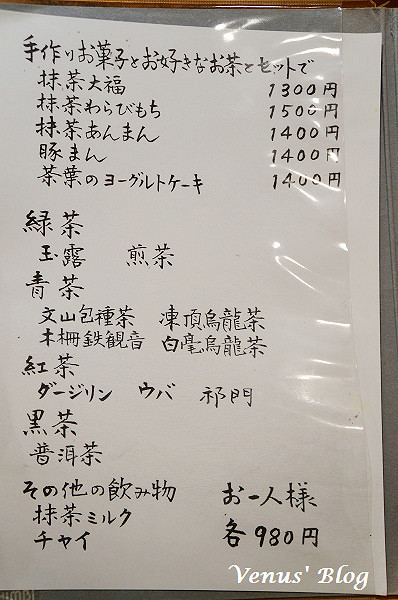 手作りお菓子とお好きなお茶とセットで
抹茶大福 1300円
抹茶わらびもち 1500円
抹茶あんまん 1400円
豚まん 1400円
茶葉のヨーグルトケーキ 1400円
緑茶
玉露 煎茶
青茶
文山包種茶 凍頂烏龍茶
木柵鉄観音 白毫烏龍茶
紅茶
ダージリン ウバ 祁門
黒茶
普洱茶
その他の飲み物 お一人様
抹茶ミルク 各980円
チャイ
Venus' Blog